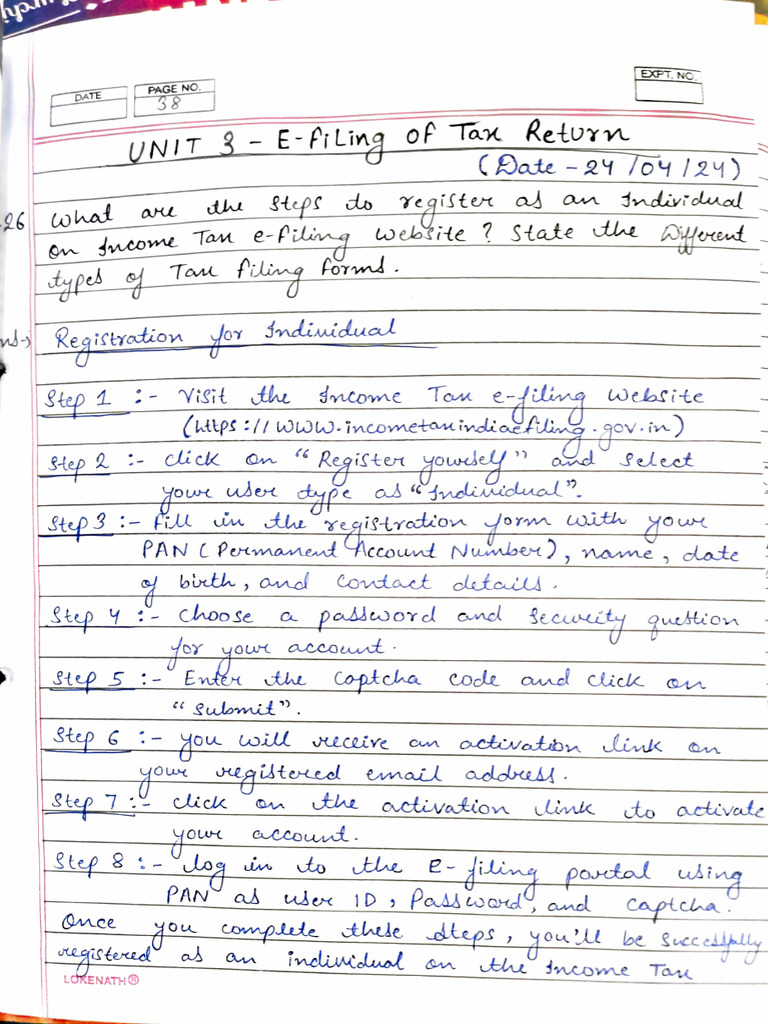 DATE
PAGE NO.
38
EXPT. NO.
UNIT 3 - E-filing of Tax Return
(Date - 24/04/24)
26 What are the steps to register as an Individual
on Income Tax e-filing website? State the Different
types of Tax filing forms.
Registration for Individual
Step 1 :- Visit the Income Tax e-filing website
(https://www.incometaxindiaefiling.gov.in)
Step 2 :- click on "Register yourself" and select
your user type as "Individual".
Step 3 :- fill in the registration form with your
PAN (Permanent Account Number), name, date
of birth, and contact details.
Step 4 :- Choose a password and security question
for your account.
Step 5 :- Enter the captcha code and click on
"submit".
Step 6 :- you will receive an activation link on
your registered email address.
Step 7 :- click on the activation link to activate
your account.
Step 8 :- log in to the E-filing portal using
PAN as user ID, Password, and captcha.
Once you complete these steps, you'll be successfully
registered as an individual on the Income Tax
LOKENATH®